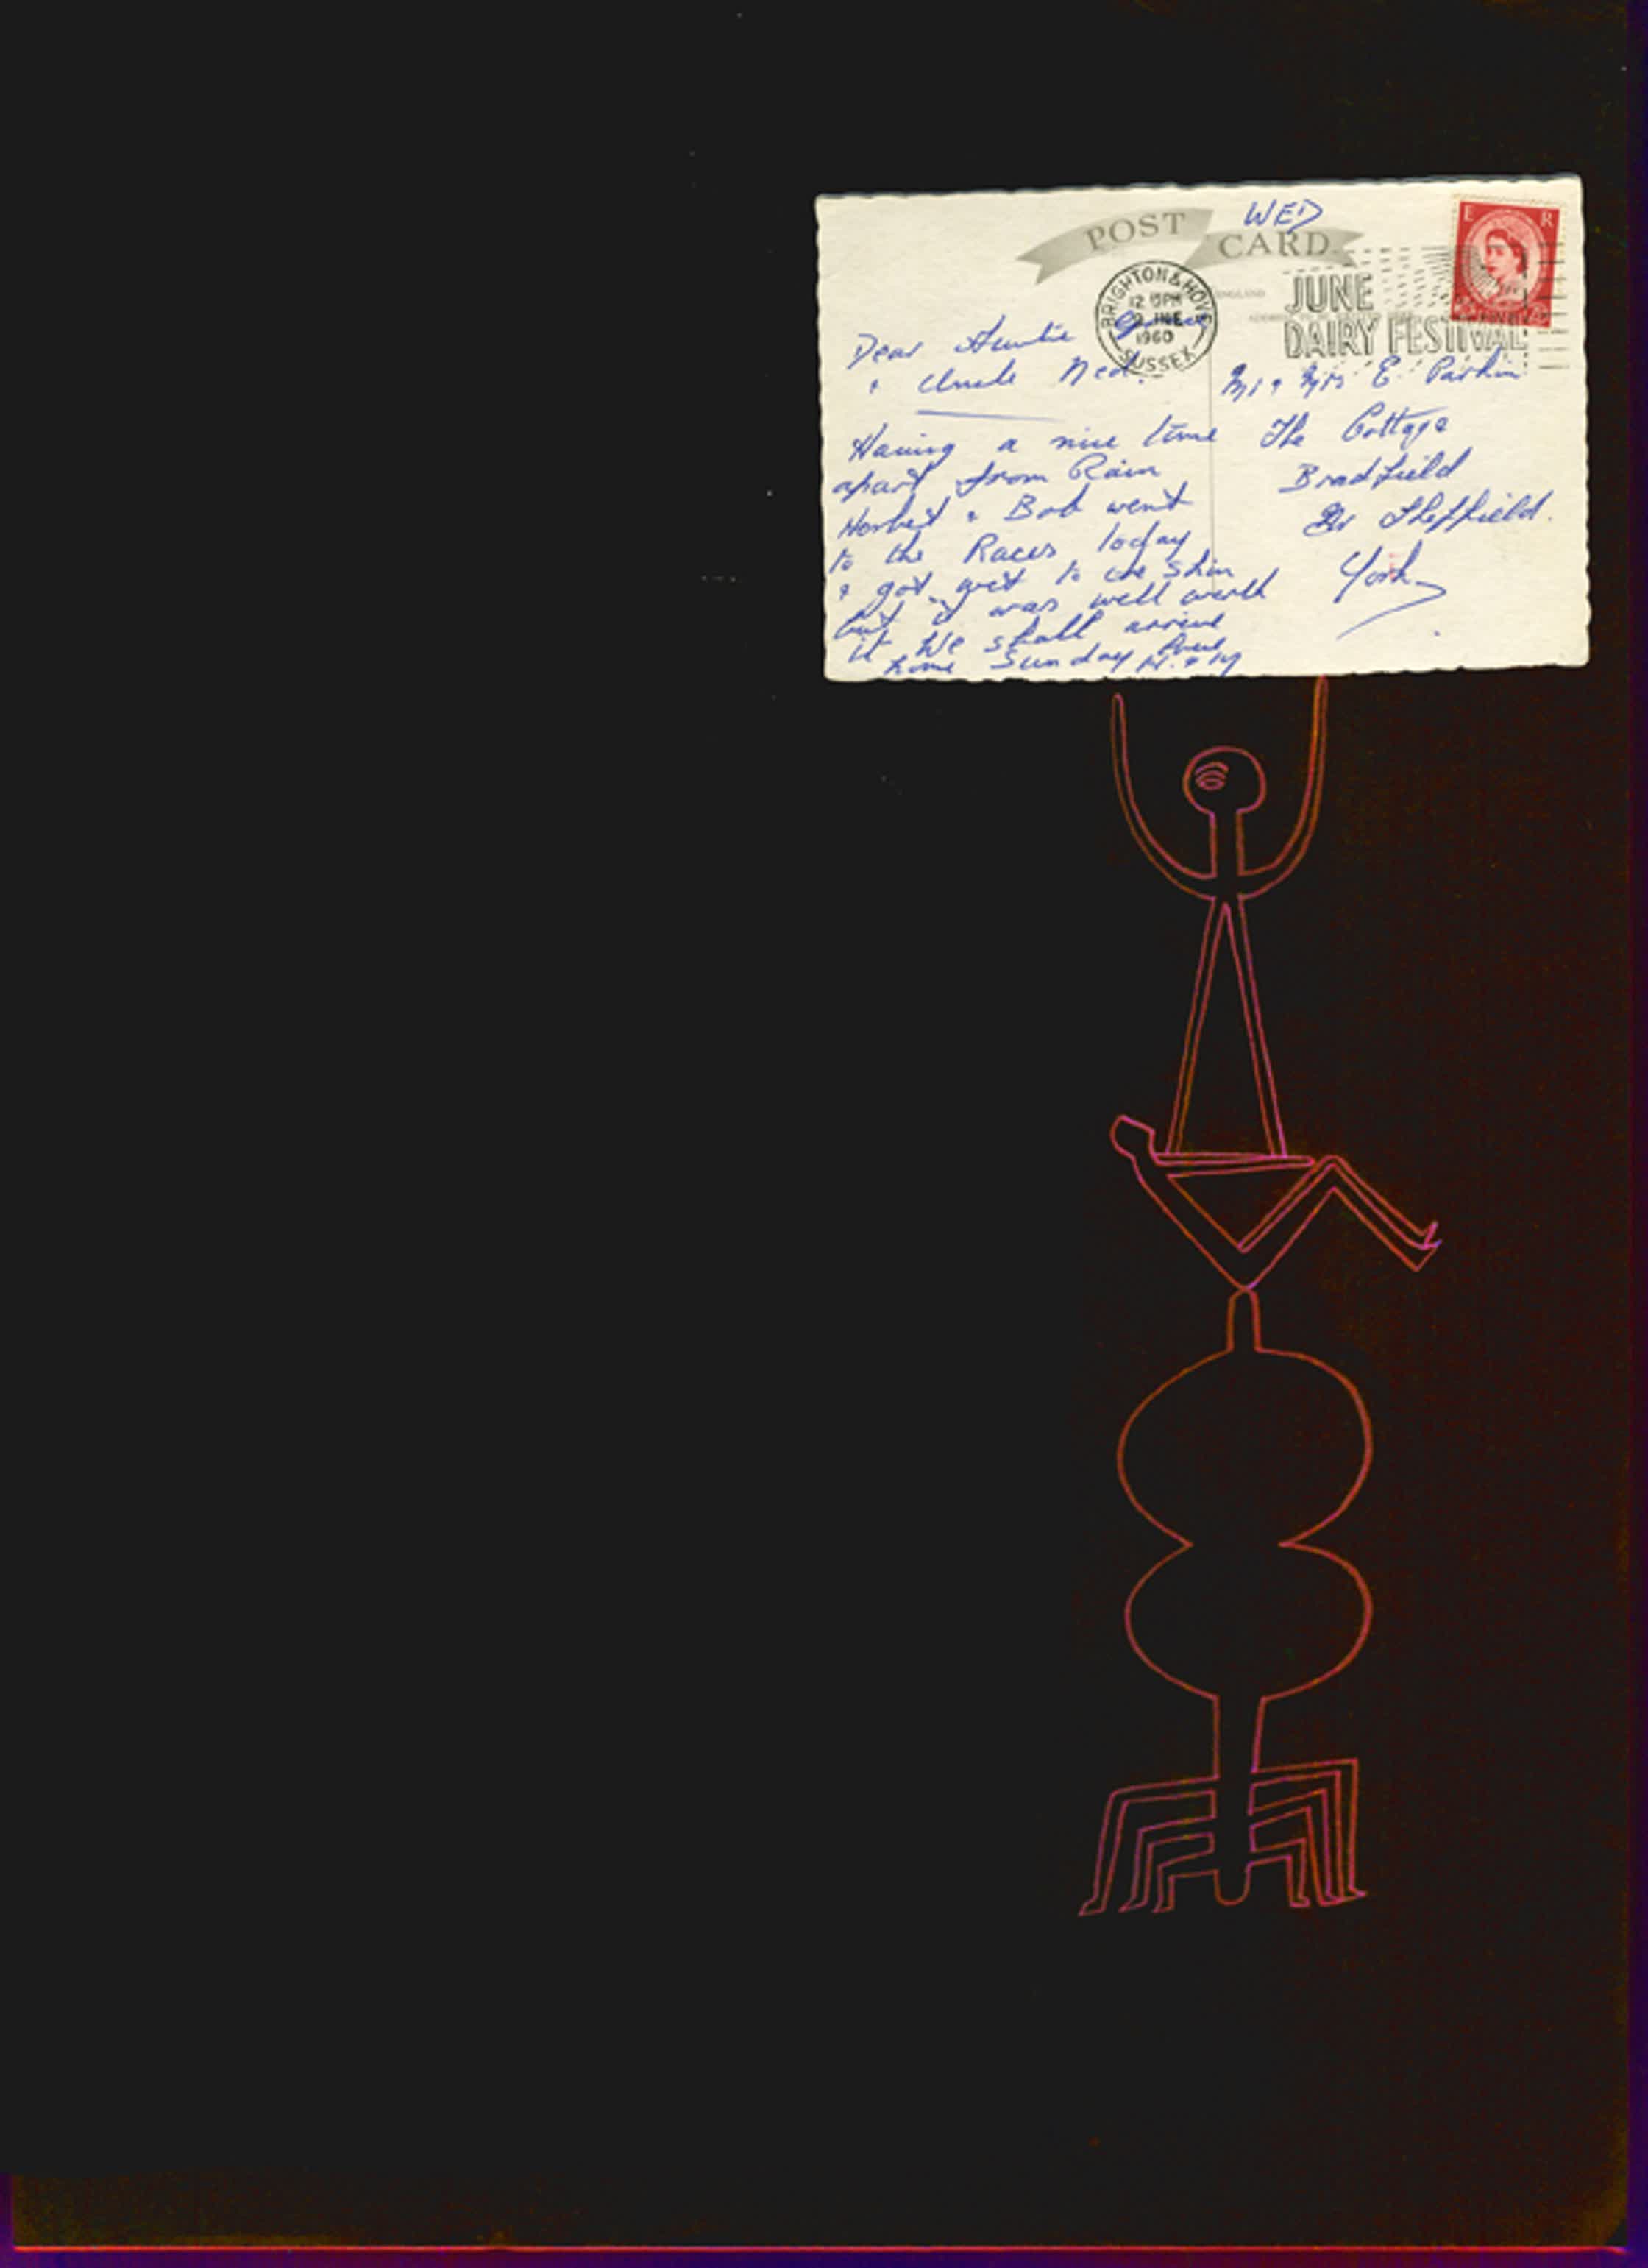 WED
POST CARD
E R
BRIGHTON & HOVE
12 15PM
JNE
1960
SUSSEX
ENGLAND
JUNE
DAIRY FESTIVAL
Dear Auntie
& Uncle Ned.
Having a nice time
apart from Rain
Herbert & Bob went
to the Races today
& got wet to the skin
but it was well worth
it We shall arrive
home Sunday
Mr & Mrs E Parkin
The Cottage
Bradfield
Nr Sheffield.
York